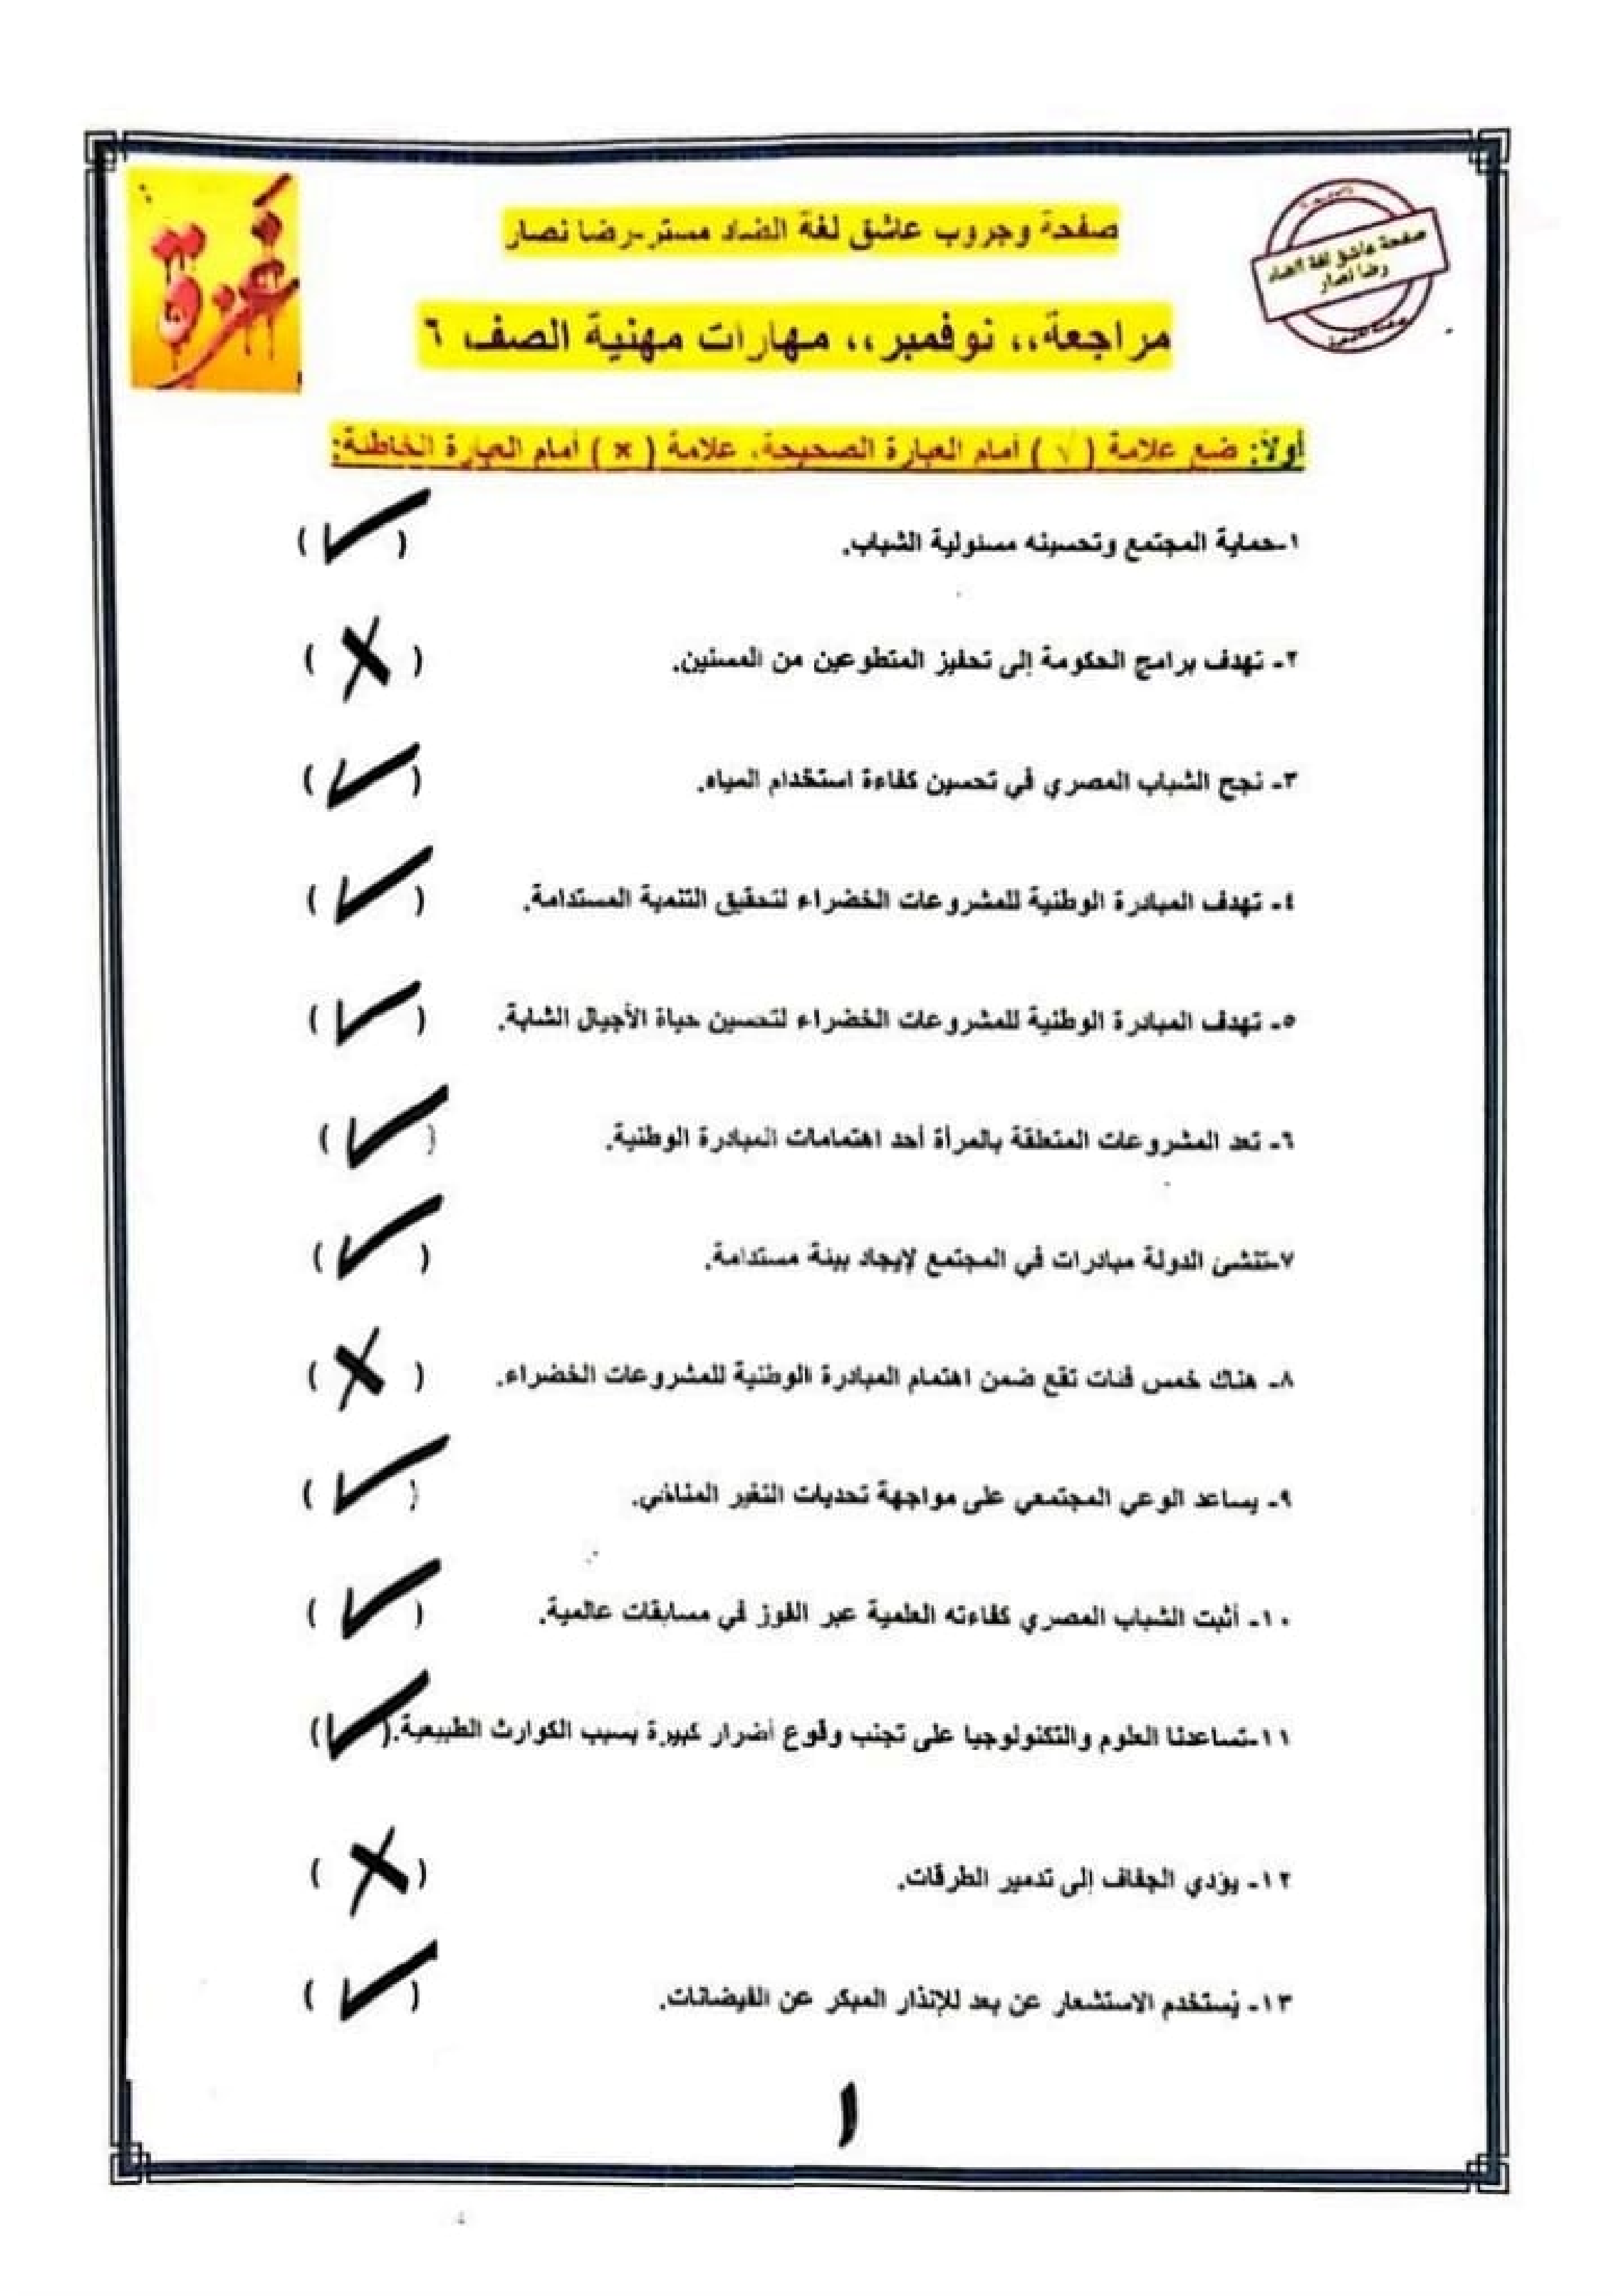 صفحة وجروب عاشق لغة الضاد مستر-رضا نصار
صفحة عاشق لغة الضاد
رضا نصار
غزة
مراجعة،، نوفمبر،، مهارات مهنية الصف ٦
أولاً: ضع علامة ( √ ) أمام العبارة الصحيحة، علامة ( × ) أمام العبارة الخاطئة:
١-حماية المجتمع وتحسينه مسئولية الشباب. (✓)
٢- تهدف برامج الحكومة إلى تحفيز المتطوعين من المسنين. (×)
٣- نجح الشباب المصري في تحسين كفاءة استخدام المياه. (✓)
٤- تهدف المبادرة الوطنية للمشروعات الخضراء لتحقيق التنمية المستدامة. (✓)
٥- تهدف المبادرة الوطنية للمشروعات الخضراء لتحسين حياة الأجيال الشابة. (✓)
٦- تعد المشروعات المتعلقة بالمرأة أحد اهتمامات المبادرة الوطنية. (✓)
٧-تنشئ الدولة مبادرات في المجتمع لإيجاد بيئة مستدامة. (✓)
٨- هناك خمس فئات تقع ضمن اهتمام المبادرة الوطنية للمشروعات الخضراء. (×)
٩- يساعد الوعي المجتمعي على مواجهة تحديات التغير المناخي. (✓)
١٠- أثبت الشباب المصري كفاءته العلمية عبر الفوز في مسابقات عالمية. (✓)
١١-تساعدنا العلوم والتكنولوجيا على تجنب وقوع أضرار كبيرة بسبب الكوارث الطبيعية. (✓)
١٢- يؤدي الجفاف إلى تدمير الطرقات. (×)
١٣- يُستخدم الاستشعار عن بعد للإنذار المبكر عن الفيضانات. (✓)
١